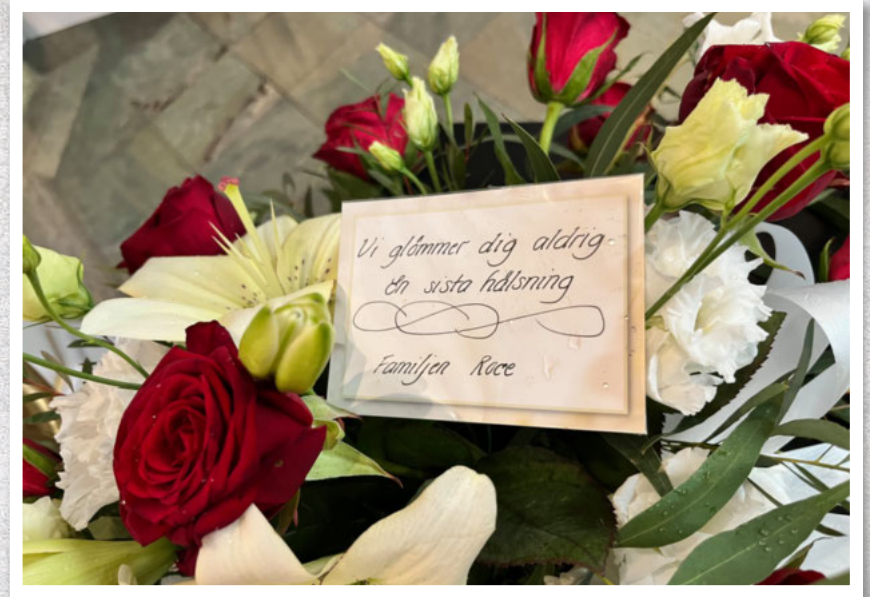 Vi glömmer dig aldrig
En sista hälsning
Familjen Roce